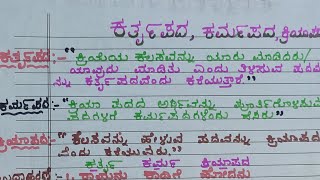 ಕರ್ತೃಪದ, ಕರ್ಮಪದ, ಕ್ರಿಯಾಪ
ಕರ್ತೃಪದ:- "ಕ್ರಿಯೆಯ ಕೆಲಸವನ್ನು ಯಾರು ಮಾಡಿದರು/
ಯಾವುದು ಮಾಡಿತು ಎಂದು ತಿಳಿಸುವ ಪದವ
ನ್ನು ಕರ್ತೃಪದವೆಂದು ಕರೆಯುತ್ತಾರೆ"
ಕರ್ಮಪದ:- "ಕ್ರಿಯಾ ಪದದ ಅರ್ಥವನ್ನು ಪೂರ್ತಿಗೊಳಿಸುವ
ಪದಗಳಿಗೆ ಕರ್ಮಪದಗಳೆಂದು ಹೆಸರು"
ಕ್ರಿಯಾಪದ:- "ಕೆಲಸವನ್ನು ಹೇಳುವ ಪದವನ್ನು ಕ್ರಿಯಾಪದ
ವೆಂದು ಕರೆಯುವರು."
ಕರ್ತೃ ಕರ್ಮ ಕ್ರಿಯಾಪದ